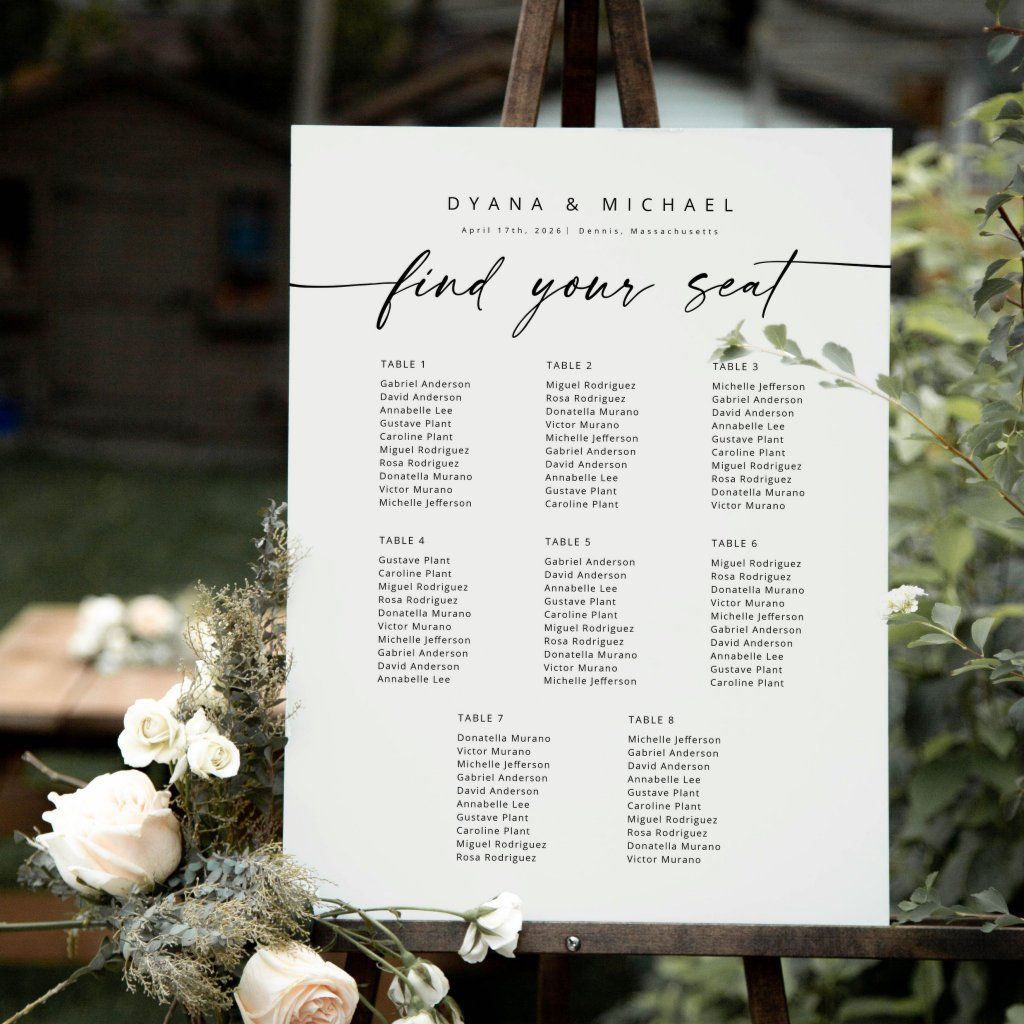 DYANA & MICHAEL
April 17th, 2026 | Dennis, Massachusetts
find your seat
TABLE 1
Gabriel Anderson
David Anderson
Annabelle Lee
Gustave Plant
Caroline Plant
Miguel Rodriguez
Rosa Rodriguez
Donatella Murano
Victor Murano
Michelle Jefferson
TABLE 2
Miguel Rodriguez
Rosa Rodriguez
Donatella Murano
Victor Murano
Michelle Jefferson
Gabriel Anderson
David Anderson
Annabelle Lee
Gustave Plant
Caroline Plant
TABLE 3
Michelle Jefferson
Gabriel Anderson
David Anderson
Annabelle Lee
Gustave Plant
Caroline Plant
Miguel Rodriguez
Rosa Rodriguez
Donatella Murano
Victor Murano
TABLE 4
Gustave Plant
Caroline Plant
Miguel Rodriguez
Rosa Rodriguez
Donatella Murano
Victor Murano
Michelle Jefferson
Gabriel Anderson
David Anderson
Annabelle Lee
TABLE 5
Gabriel Anderson
David Anderson
Annabelle Lee
Gustave Plant
Caroline Plant
Miguel Rodriguez
Rosa Rodriguez
Donatella Murano
Victor Murano
Michelle Jefferson
TABLE 6
Miguel Rodriguez
Rosa Rodriguez
Donatella Murano
Victor Murano
Michelle Jefferson
Gabriel Anderson
David Anderson
Annabelle Lee
Gustave Plant
Caroline Plant
TABLE 7
Donatella Murano
Victor Murano
Michelle Jefferson
Gabriel Anderson
David Anderson
Annabelle Lee
Gustave Plant
Caroline Plant
Miguel Rodriguez
Rosa Rodriguez
TABLE 8
Michelle Jefferson
Gabriel Anderson
David Anderson
Annabelle Lee
Gustave Plant
Caroline Plant
Miguel Rodriguez
Rosa Rodriguez
Donatella Murano
Victor Murano